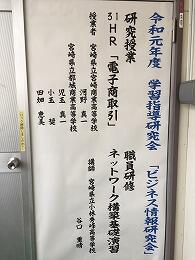 令和元年度 学習指導研究会 「ビジネス情報研究会」
研究授業
31HR 「電子商取引」
授業者 宮崎県立宮崎商業高等学校
河野 真一
宮崎県立都城商業高等学校
児玉 真一
小玉 奨
田畑 恵美
職員研修
ネットワーク構築基礎演習
講師 宮崎県立小林秀峰高等学校
谷口 重晴